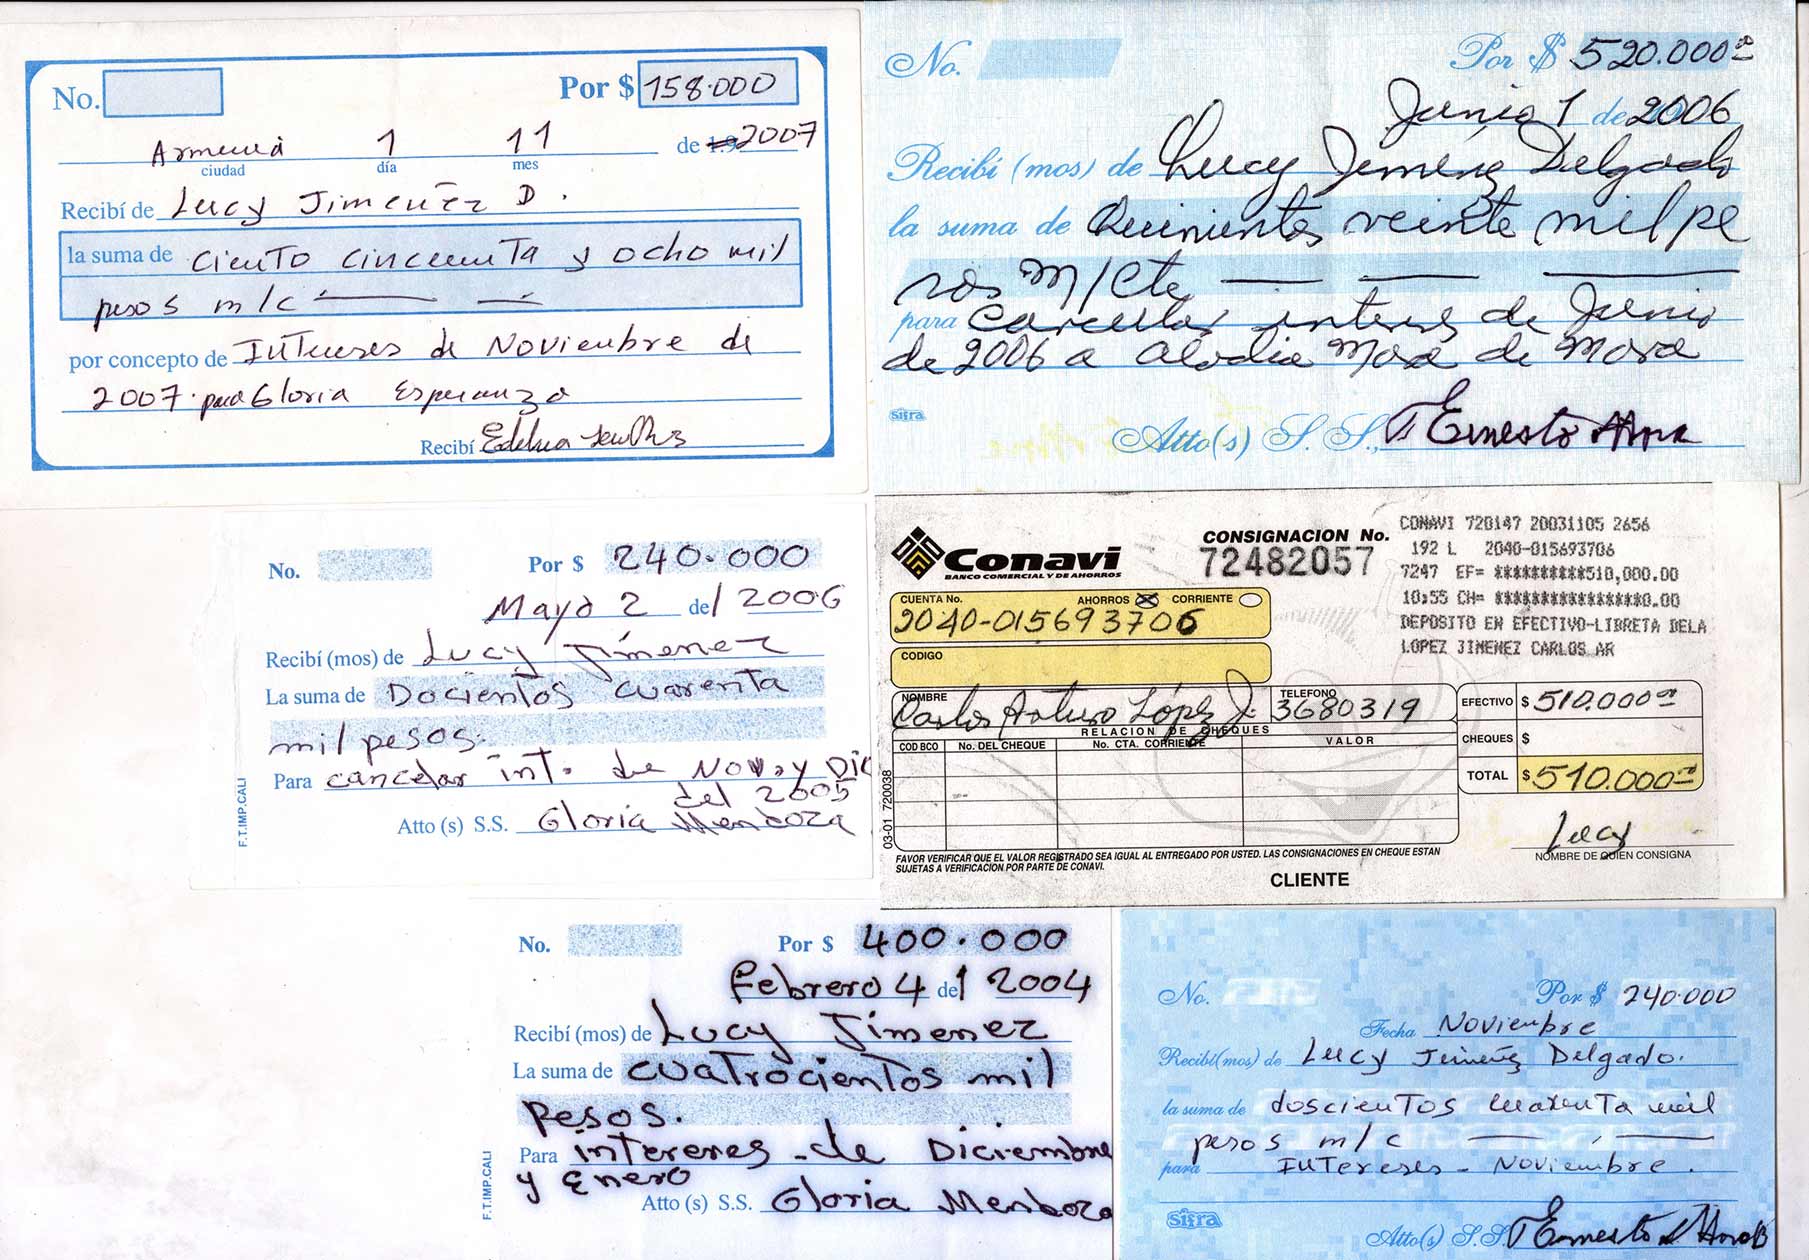 No.
Por $ 158.000
Armenia 1 11 de 1.9 2007
ciudad día mes
Recibí de Lucy Jimenez D.
la suma de ciento cincuenta y ocho mil
pesos m/c
por concepto de Intereses de Noviembre de
2007 para Gloria Esperanza
Recibí
No.
Por $ 520.000
Junio 1 de 2006
Recibí (mos) de Lucy Jiménez Delgado
la suma de Quinientos veinte mil pe
sos M/Cte
para Cancelar interes de Junio
de 2006 a Alodia Mora de Mora
sifra
Atto(s) S. S., Ernesto
No.
Por $ 240.000
Mayo 2 de/ 2006
Recibí (mos) de Lucy Jímenez
La suma de Docientos cuarenta
mil pesos.
Para cancelar int. de Nov. y Dic
del 2005
Atto (s) S.S. Gloria Mendoza
F.T.IMP.CALI
Conavi
BANCO COMERCIAL Y DE AHORROS
CONSIGNACION No.
72482057
CONAVI 720147 20031105 2656
192 L 2040-015693706
7247 EF= **********510,000.00
10:55 CH= ****************0.00
DEPOSITO EN EFECTIVO-LIBRETA DELA
LOPEZ JIMENEZ CARLOS AR
CUENTA No. AHORROS CORRIENTE
2040-015693706
CODIGO
NOMBRE TELEFONO
Carlos Arturo López J. 3680319
RELACION DE CHEQUES
COD BCO No. DEL CHEQUE No. CTA. CORRIENTE VALOR
EFECTIVO $ 510.000
CHEQUES $
TOTAL $ 510.000
03-01 720038
Lucy
NOMBRE DE QUIEN CONSIGNA
FAVOR VERIFICAR QUE EL VALOR REGISTRADO SEA IGUAL AL ENTREGADO POR USTED. LAS CONSIGNACIONES EN CHEQUE ESTAN
SUJETAS A VERIFICACION POR PARTE DE CONAVI.
CLIENTE
No.
Por $ 400.000
Febrero 4 de/ 2004
Recibí (mos) de Lucy Jímenez
La suma de cuatrocientos mil
pesos.
Para intereses de Diciembre
y Enero
Atto (s) S.S. Gloria Mendoza
F.T.IMP.CALI
No.
Por $ 240.000
Fecha Noviembre
Recibí(mos) de Lucy Jiménez Delgado.
la suma de doscientos cuarenta mil
pesos m/c
para Intereses - Noviembre.
sifra
Atto(s) S.S. Ernesto